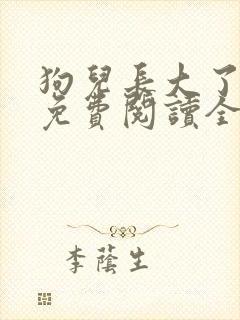 狗兒長大了
免費閱讀全
李蔭生